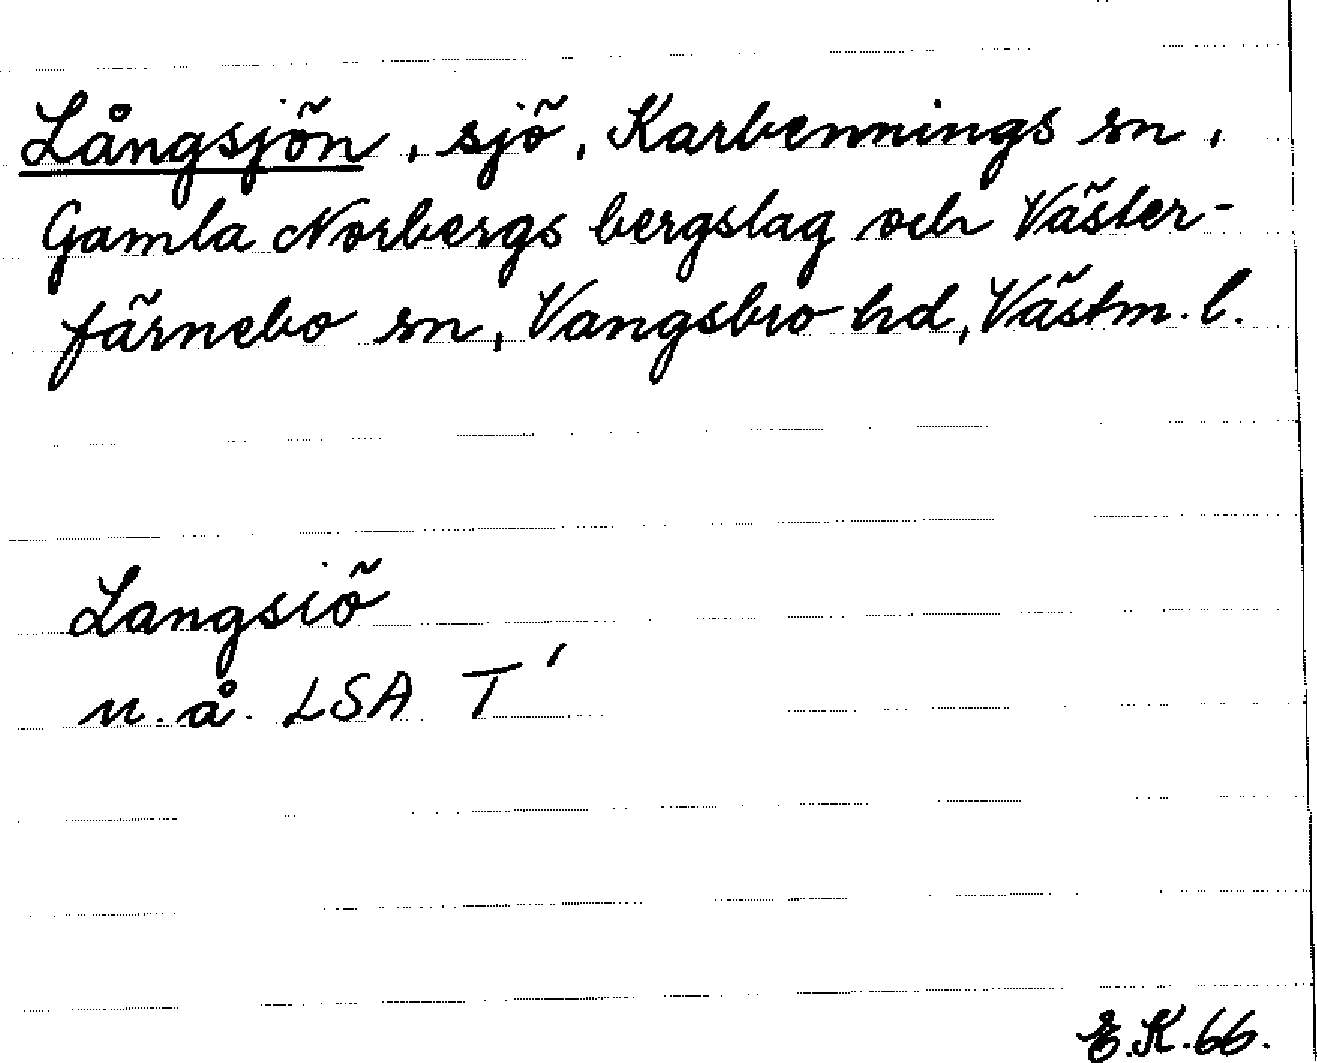 Långsjön, sjö, Karbennings sn,
Gamla Norbergs bergslag och Väster-
färnebo sn, Vangsbro hd, Västm. l.
Langsiö
u. å. LSA T'
E.K.66.